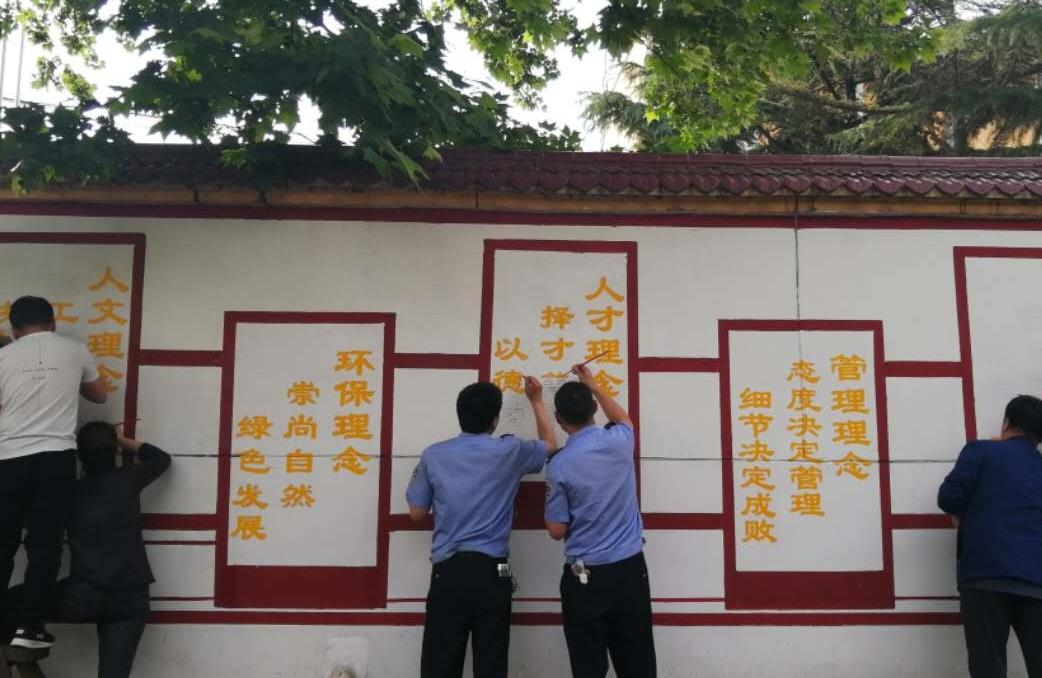 人文理念
工
环保理念
崇尚自然
绿色发展
人才理念
择才
以德
管理理念
态度决定管理
细节决定成败